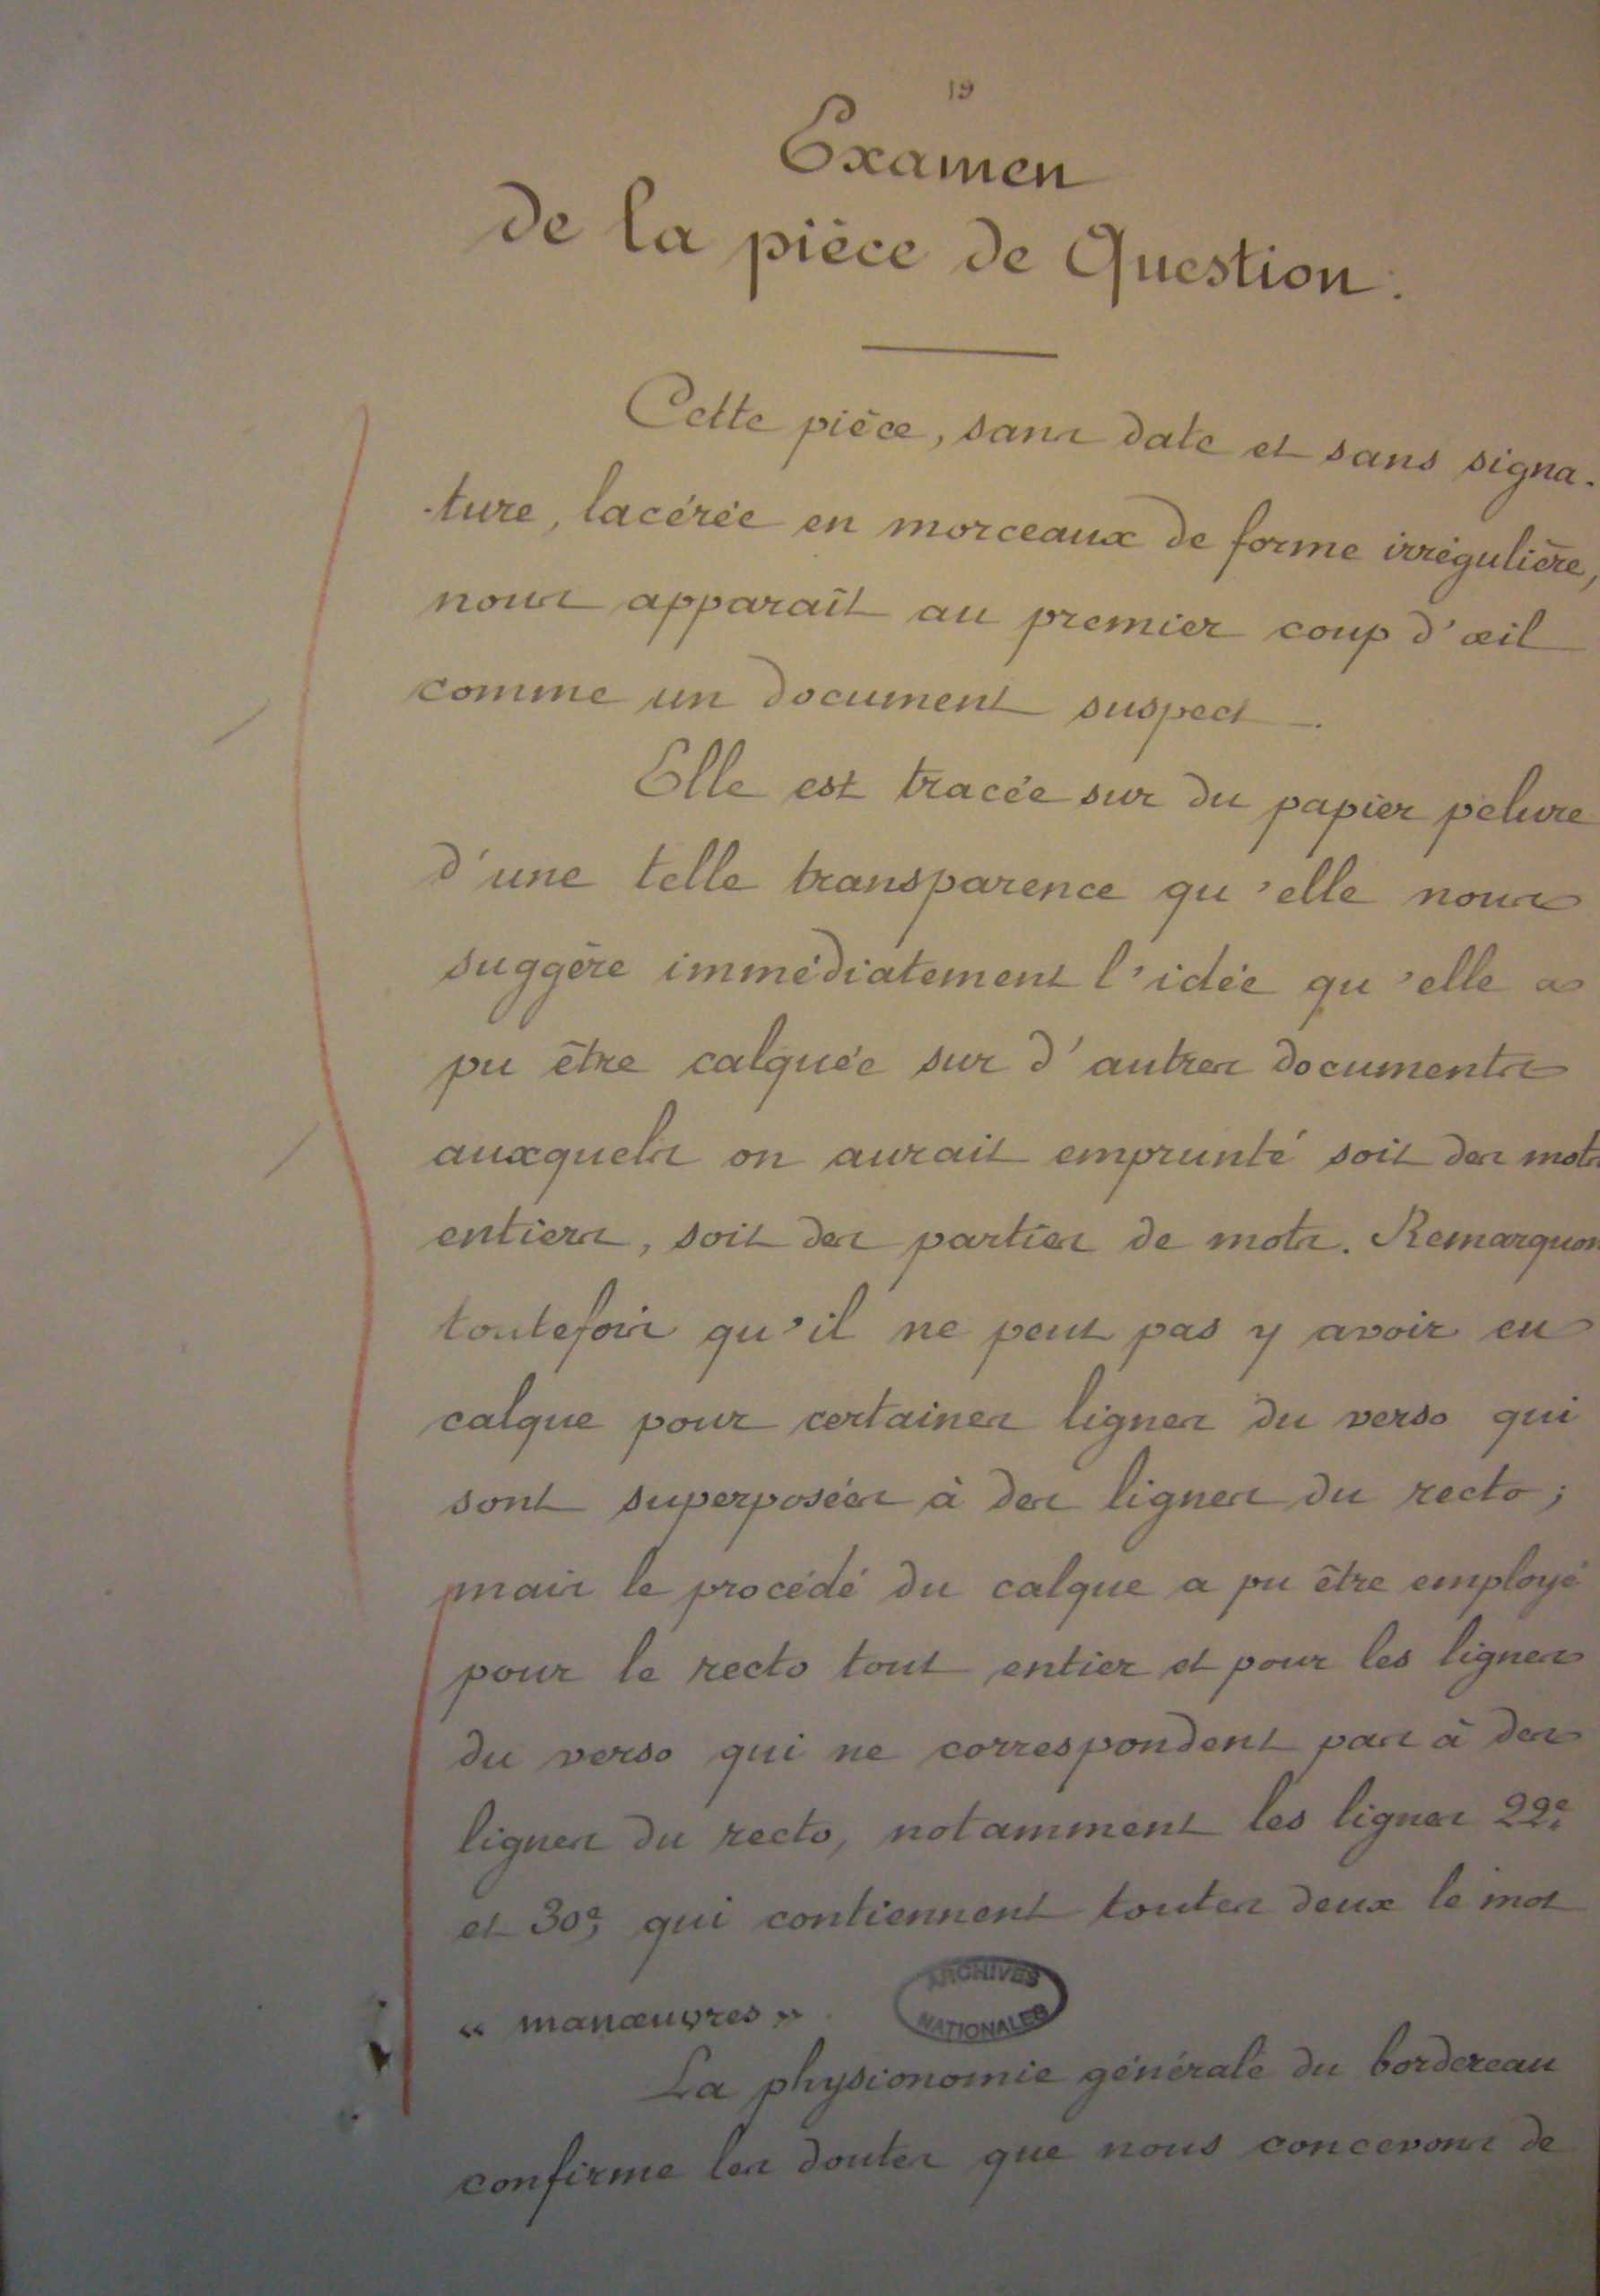 19
Examen
de la pièce de Question.
Cette pièce, sans date et sans signa-
-ture, lacérée en morceaux de forme irrégulière,
nous apparaît au premier coup d'œil
comme un document suspect.
Elle est tracée sur du papier pelure
d'une telle transparence qu'elle nous
suggère immédiatement l'idée qu'elle a
pu être calquée sur d'autres documents
auxquels on aurait emprunté soit des mots
entiers, soit des parties de mots. Remarquons
toutefois qu'il ne peut pas y avoir eu
calque pour certaines lignes du verso qui
sont superposées à des lignes du recto;
mais le procédé du calque a pu être employé
pour le recto tout entier et pour les lignes
du verso qui ne correspondent pas à des
lignes du recto, notamment les lignes 22e
et 30e, qui contiennent toutes deux le mot
« manœuvres ».
ARCHIVES
NATIONALES
La physionomie générale du bordereau
confirme les doutes que nous concevons de